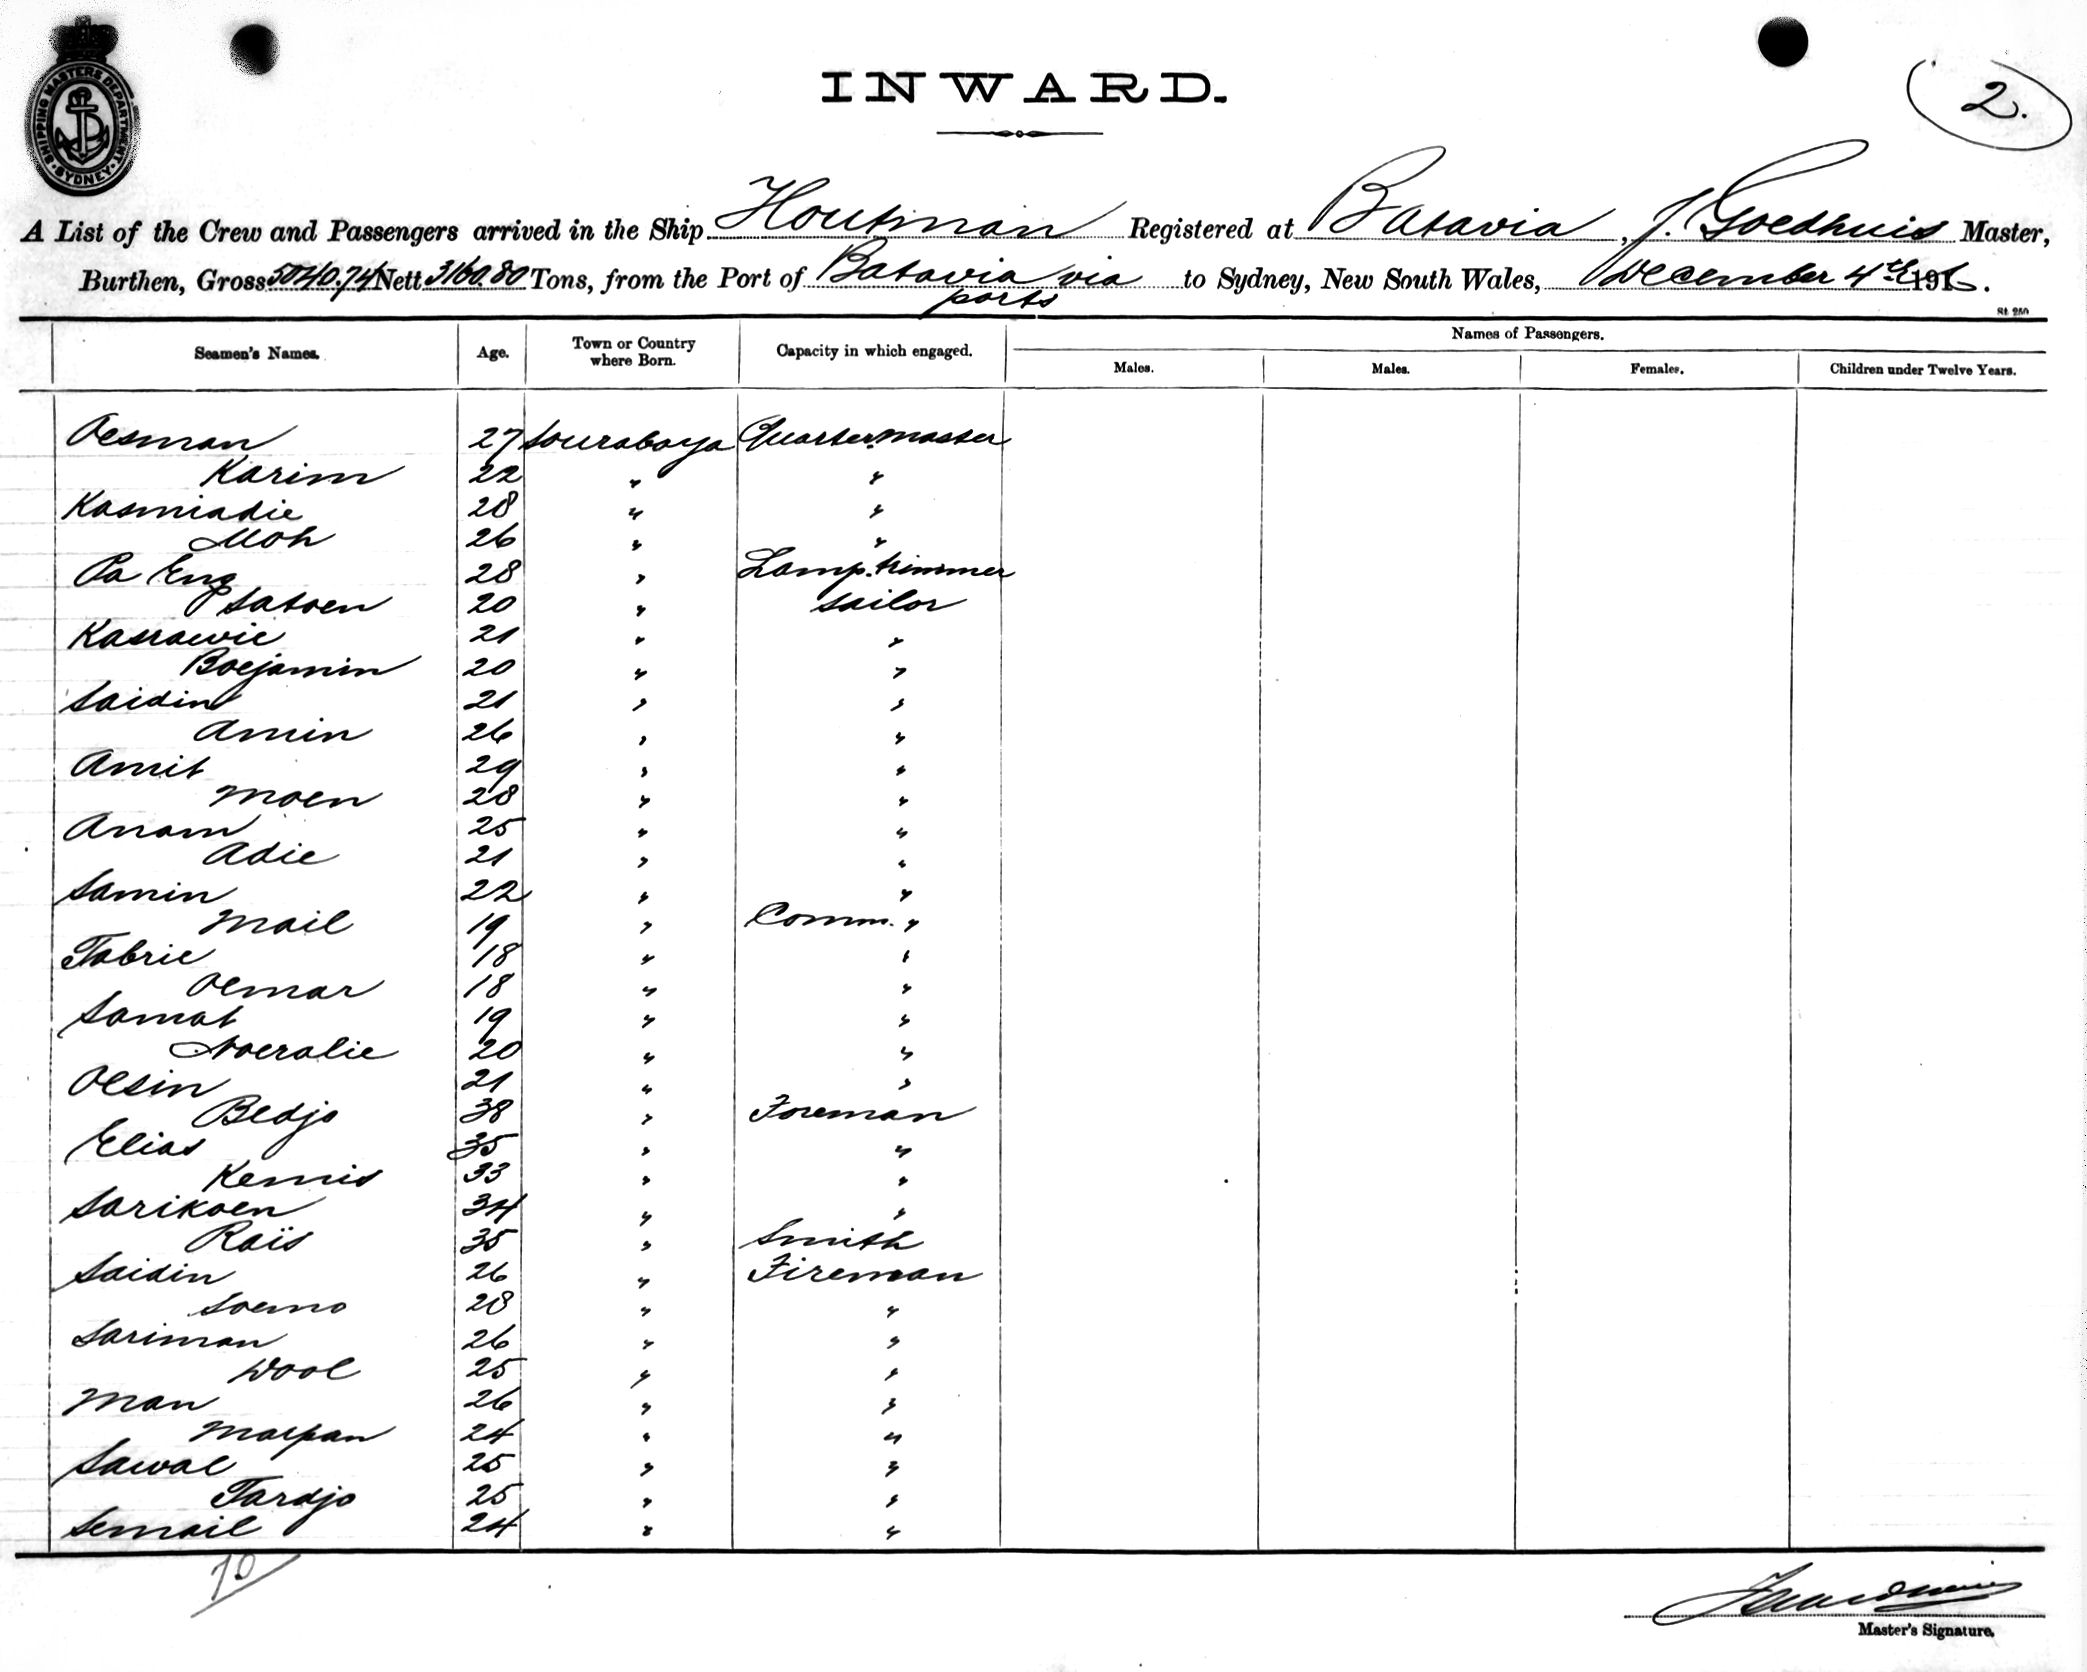 SHIPPING MASTERS DEPARTMENT SYDNEY
INWARD.
2.
A List of the Crew and Passengers arrived in the Ship Houtman Registered at Batavia, J. Goedhuis Master,
Burthen, Gross 5040.74 Nett 3160.80 Tons, from the Port of Batavia via ports to Sydney, New South Wales, December 4th 1916.
St. 250
Seamen's Names. Age. Town or Country where Born. Capacity in which engaged. Names of Passengers.
Males. Males. Females. Children under Twelve Years.
Oesman 27 Sourabaya Quartermaster
Karim 22 " "
Kasmiadie 28 " "
Moh 26 " "
Pa Eng 28 " Lamp.trimmer
Satoen 20 " Sailor
Kasrawie 21 " "
Boejamin 20 " "
Saidin 21 " "
Amin 26 " "
Amit 29 " "
Moen 28 " "
Anam 25 " "
Adie 21 " "
Samin 22 " "
Mail 19 " Comm. "
Tabrie 18 " "
Oemar 18 " "
Samat 19 " "
Noeralie 20 " "
Oesin 21 " "
Bedjo 38 " Foreman
Elias 35 " "
Kemis 33 " "
Sarikoen 34 " "
Raïs 35 " Smith
Saidin 26 " Fireman
Soemo 28 " "
Sariman 26 " "
Wool 25 " "
Man 26 " "
Maepan 24 " "
Sawal 25 " "
Tardjo 25 " "
Semail 24 " "
Master's Signature.